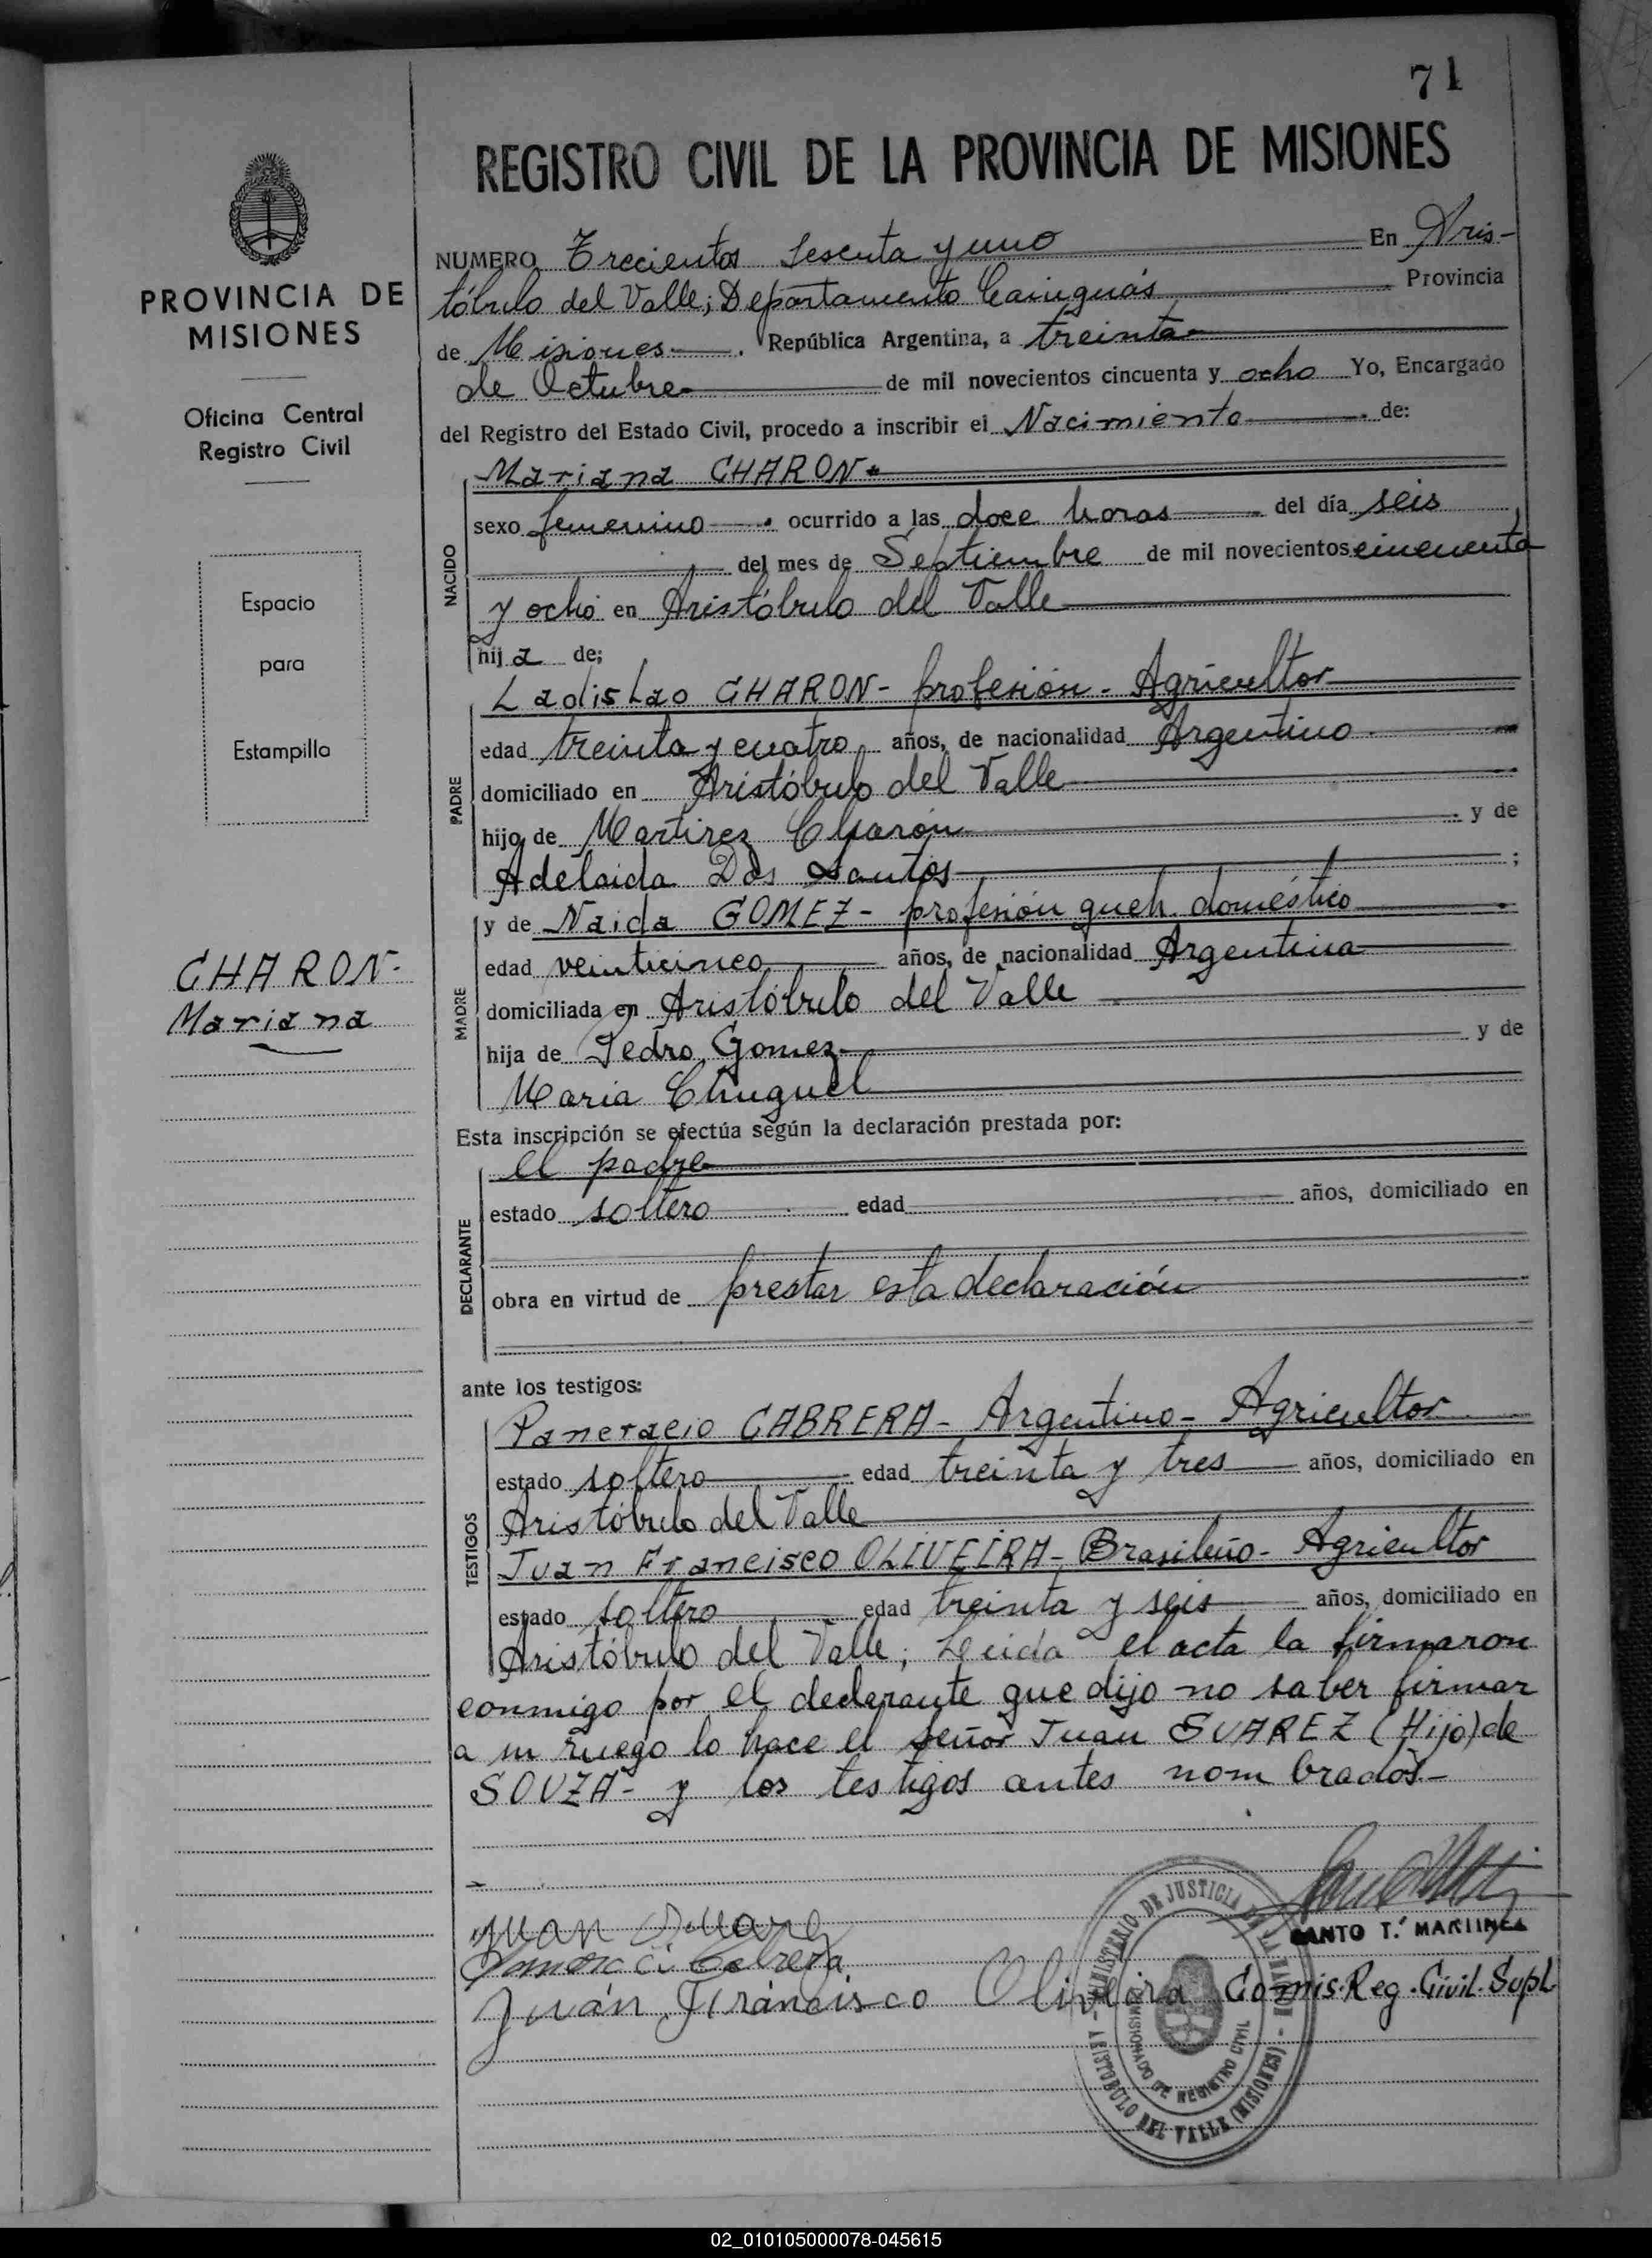 71
REGISTRO CIVIL DE LA PROVINCIA DE MISIONES
PROVINCIA DE
MISIONES
Oficina Central
Registro Civil
Espacio
para
Estampilla
CHARON-
Mariana
NUMERO Trecientos Sesenta y uno En Aris-
tóbulo del Valle; Departamento Cainguás Provincia
de Misiones. República Argentina, a treinta
de Octubre de mil novecientos cincuenta y ocho Yo, Encargado
del Registro del Estado Civil, procedo a inscribir el Nacimiento de:
NACIDO
Mariana CHARON
sexo femenino ocurrido a las doce horas del día seis
del mes de Septiembre de mil novecientos cincuenta
y ocho en Aristóbulo del Valle
hija de;
PADRE
Ladislao CHARON- profesión- Agricultor
edad treinta y cuatro años, de nacionalidad Argentino
domiciliado en Aristóbulo del Valle
hijo de Martirez Charon y de
Adelaida Dos Santos ;
MADRE
y de Naida GOMEZ- profesión queh. doméstico
edad veinticinco años, de nacionalidad Argentina
domiciliada en Aristóbulo del Valle
hija de Pedro Gomez y de
Maria
Esta inscripción se efectúa según la declaración prestada por:
DECLARANTE
el padre
estado soltero edad años, domiciliado en
obra en virtud de prestar esta declaración
ante los testigos:
TESTIGOS
Pancracio CABRERA- Argentino- Agricultor
estado soltero edad treinta y tres años, domiciliado en
Aristóbulo del Valle
Juan Francisco OLIVEIRA- Brasileño- Agricultor
estado soltero edad treinta y seis años, domiciliado en
Aristóbulo del Valle; Leida el acta la firmaron
conmigo por el declarante que dijo no saber firmar
a su ruego lo hace el señor Juan SUAREZ (Hijo) de
SOUZA- y los testigos antes nombrados-
Juan Suarez
Cabrera
Juán Francisco Oliveira
SANTO T. MARTINEZ
Comis. Reg. Civil. Supl.
MINISTERIO DE JUSTICIA
COMISIONADO DE REGISTRO CIVIL
ARISTOBULO DEL VALLE (MISIONES)
02_010105000078-045615